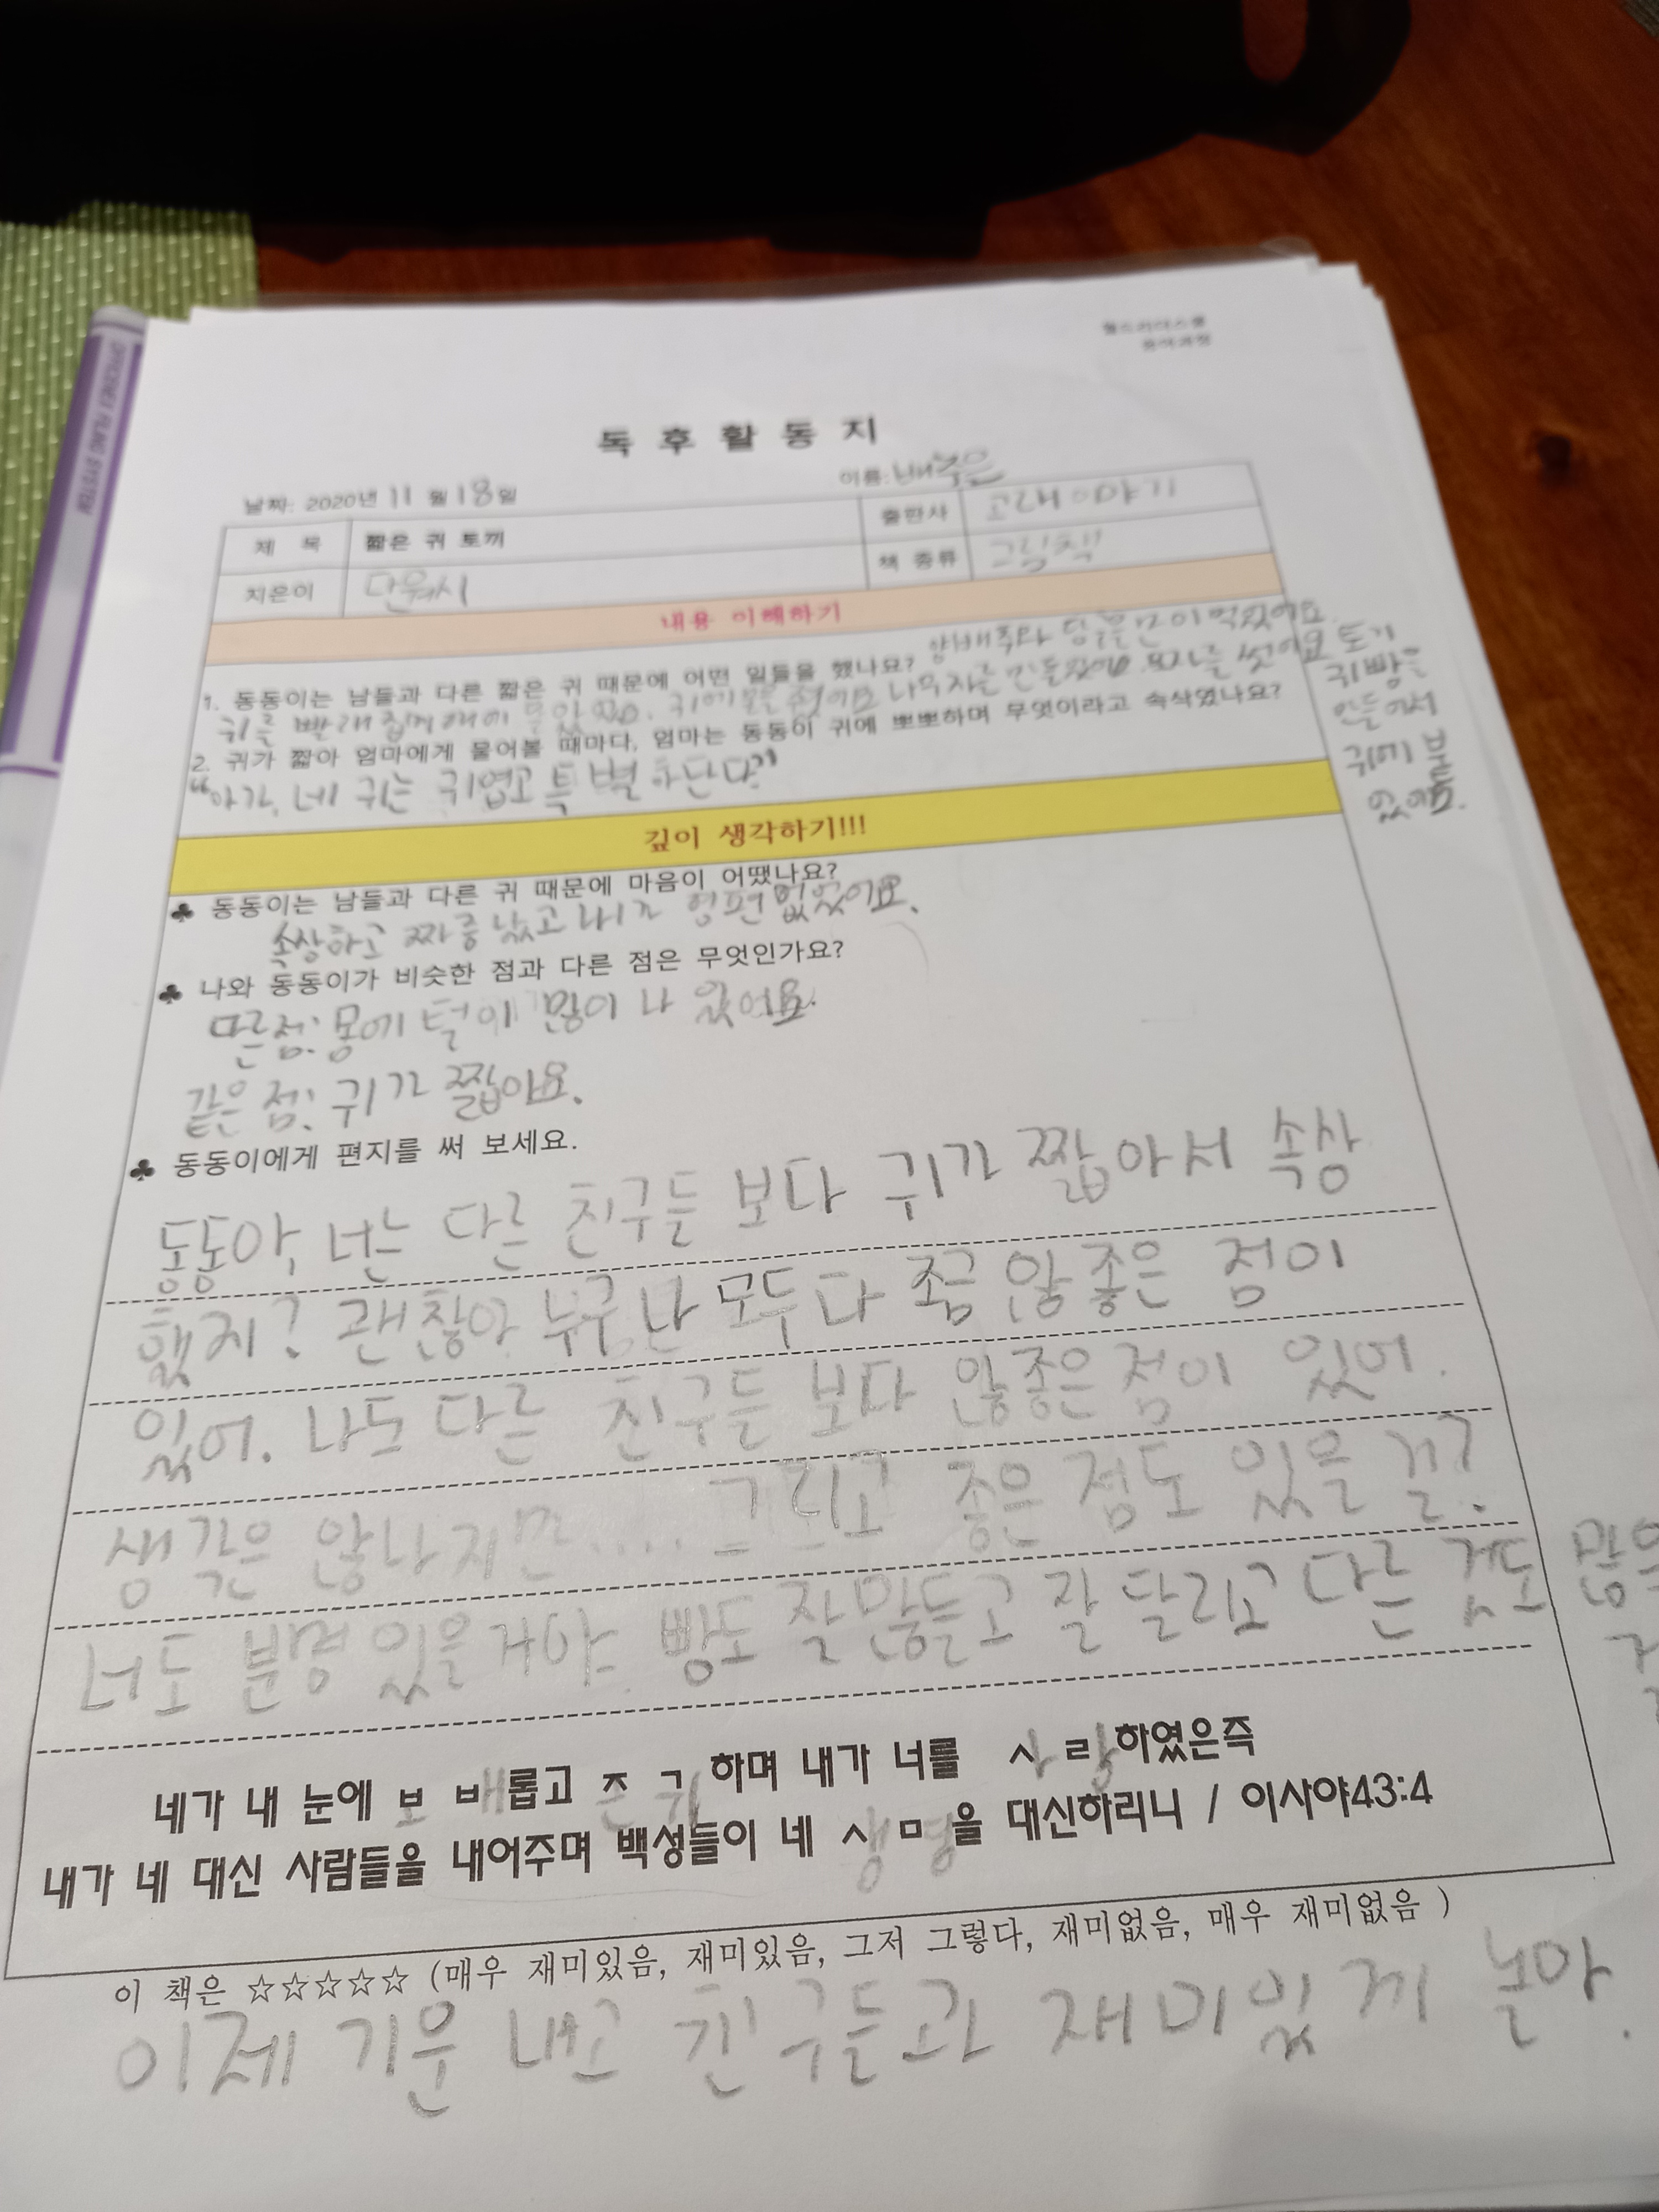 독 후 활 동 지
날짜: 2020년 11 월 18일 이름: 배주은
제 목 짧은 귀 토끼 출판사 고래이야기
지은이 다원시 책 종류 그림책
내용 이해하기
1. 동동이는 남들과 다른 짧은 귀 때문에 어떤 일들을 했나요? 양배추와 당근을 많이 먹었어요.
귀를 빨래집게에 물을 줬어요 모자를 썼어요 토끼
귀빵을
만들어서
귀에 붙
였어요.
2. 귀가 짧아 엄마에게 물어볼 때마다, 엄마는 동동이 귀에 뽀뽀하며 무엇이라고 속삭였나요?
“아가, 네 귀는 귀엽고 특별하단다”
깊이 생각하기!!!
♣ 동동이는 남들과 다른 귀 때문에 마음이 어땠나요?
속상하고 짜증났고
♣ 나와 동동이가 비슷한 점과 다른 점은 무엇인가요?
다른점: 몸에 털이 많이 나 있어요.
같은 점: 귀가 짧아요.
♣ 동동이에게 편지를 써 보세요.
동동아, 너는 다른 친구들 보다 귀가 짧아서 속상
했지? 괜찮아 누구나 모두다 조금 않좋은 점이
있어. 나도 다른 친구들 보다 않좋은점이 있어.
생각은 않나지만.... 그리고 좋은 점도 있을 껄?
너도 분명 있을거야. 빵도 잘만들고 잘 달리고 다른 것도
네가 내 눈에 보배롭고 존귀하며 내가 너를 사랑하였은즉
내가 네 대신 사람들을 내어주며 백성들이 네 생명을 대신하리니 / 이사야43:4
이 책은 ☆☆☆☆☆ (매우 재미있음, 재미있음, 그저 그렇다, 재미없음, 매우 재미없음 )
이제 기운 내고 친구들과 재미있게 놀아.